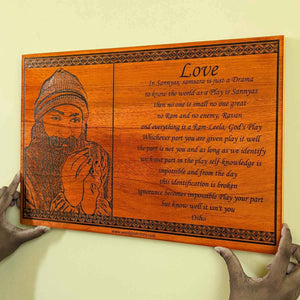 Love
In Sannyas, samsara is just a Drama
to know the world as a Play is Sannyas
then no one is small no one great
no Ram and no enemy, Ravan
and everything is a Ram-Leela, God's Play
Whichever part you are given play it well
the part is not you and as long as we identify
with our part in the play self-knowledge is
impossible and from the day
this identification is broken
ignorance becomes impossible Play your part
but know well it isn't you
Osho